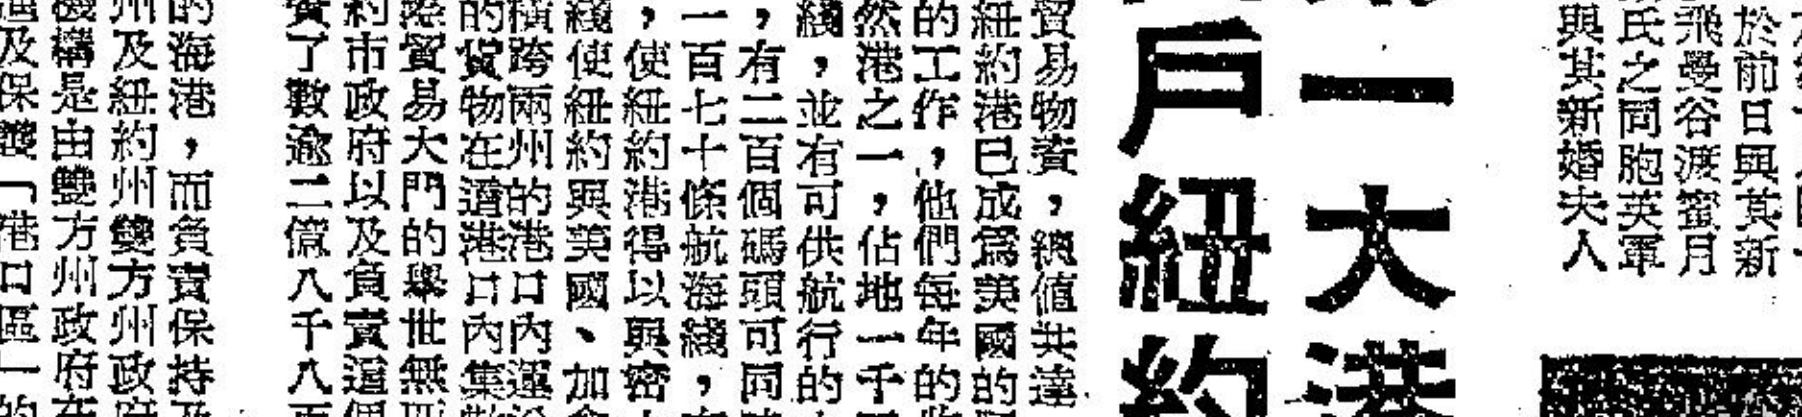 於前日與其新
飛曼谷渡蜜月
氏之同胞英軍
與其新婚夫人
一大港
戶紐約
貿易物資，總值共達
紐約港已成為美國的
的工作，他們每年的
然港之一，佔地一千
綫，並有可供航行的
，有二百個碼頭可同
一百七十條航海綫，
，使紐約港得以與
綫使紐約與美國、加
橫跨兩州的港口內運
的貨物在這港口內集
際貿易大門的舉世無
約市政府以及負責這
資了數逾二億八千八
的海港，而負責保持
州及紐約州雙方州政府
機構是由雙方州政府在
及保護「港口區」的